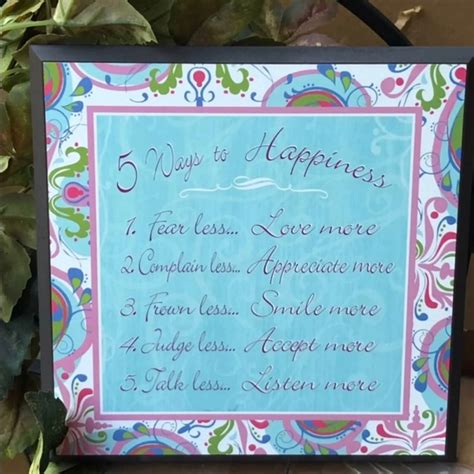 5 Ways to Happiness
1. Fear less... Love more
2. Complain less... Appreciate more
3. Frown less... Smile more
4. Judge less... Accept more
5. Talk less... Listen more